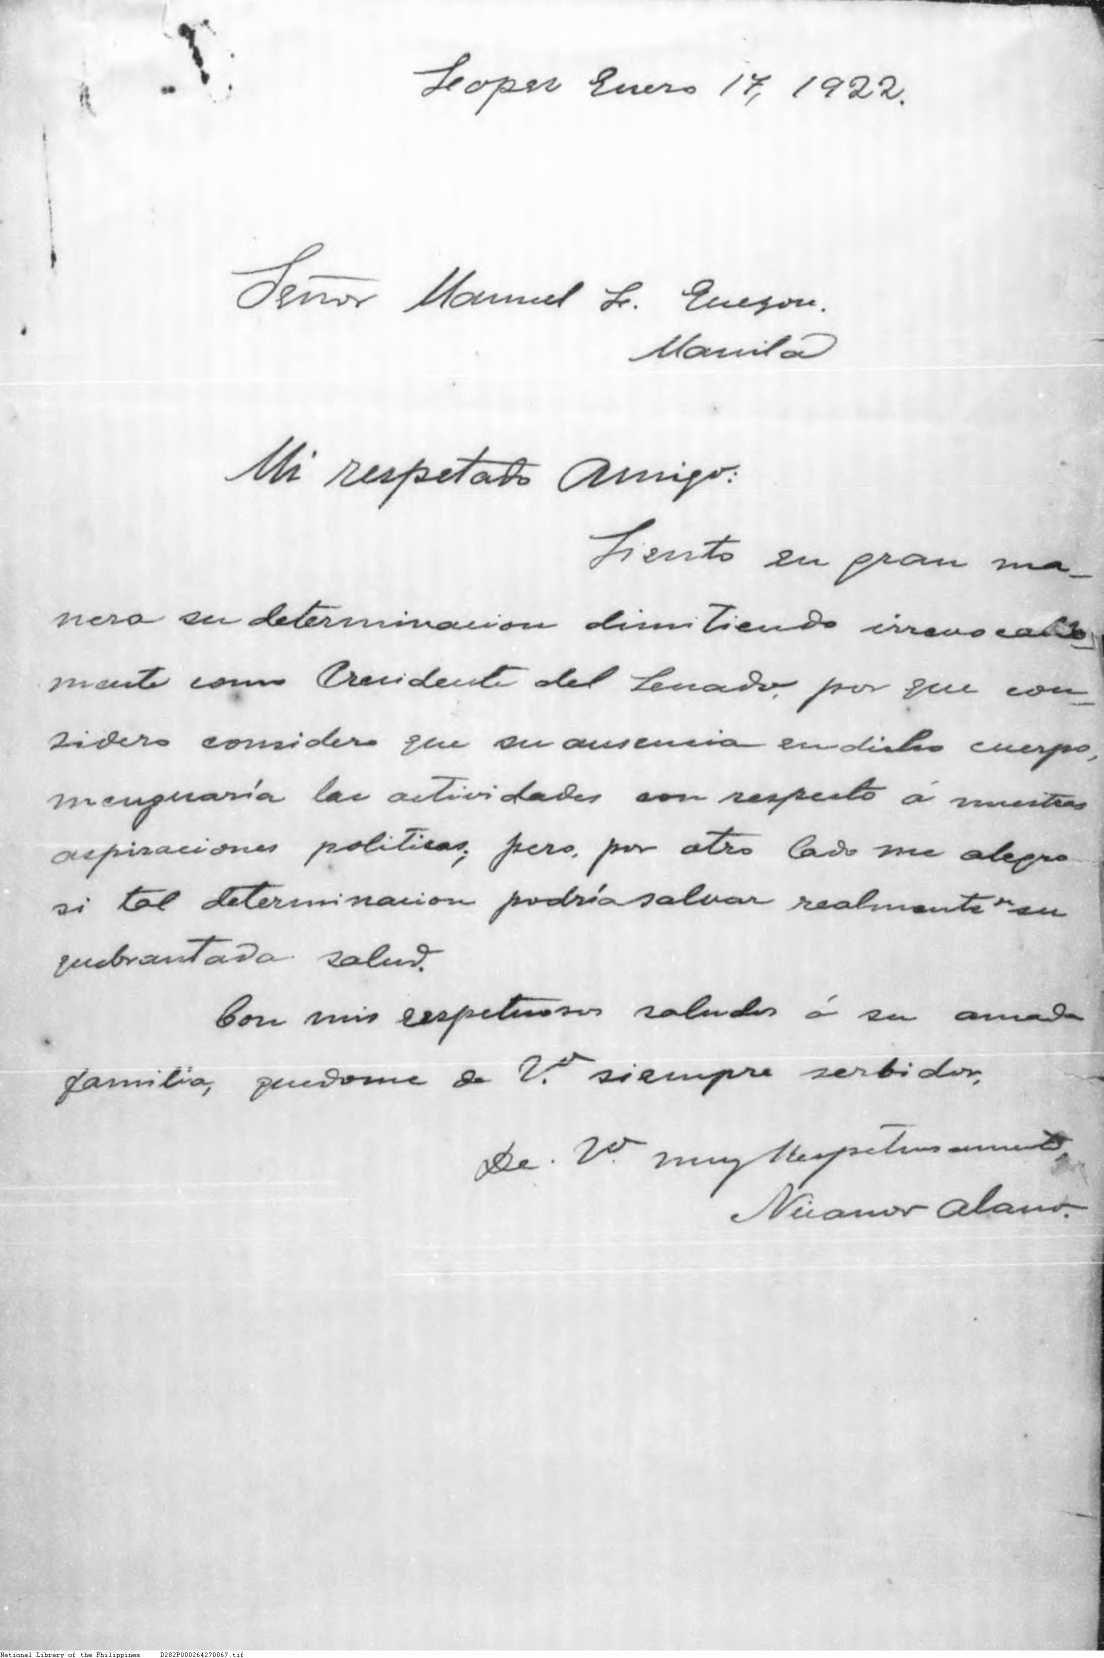 Lopez Enero 17, 1922.
Señor Manuel L. Quezon.
Manila
Mi respetado Amigo:
Siento en gran ma-
nera su determinacion dimitiendo irrevocable-
mente como Presidente del Senado, por que con-
sidero considero que su ausencia en dicho cuerpo,
menguaría las actividades con respecto á nuestras
aspiraciones politicas; pero, por otro lado me alegro
si tal determinacion podría salvar realmente su
quebrantada salud.
Con mis respetuosos saludos á su amada
familia, quedome de V. siempre serbidor,
De. Vd. muy Respetuosamente,
Nicanor Alano.
National Library of the Philippines D282P000264270067.tif